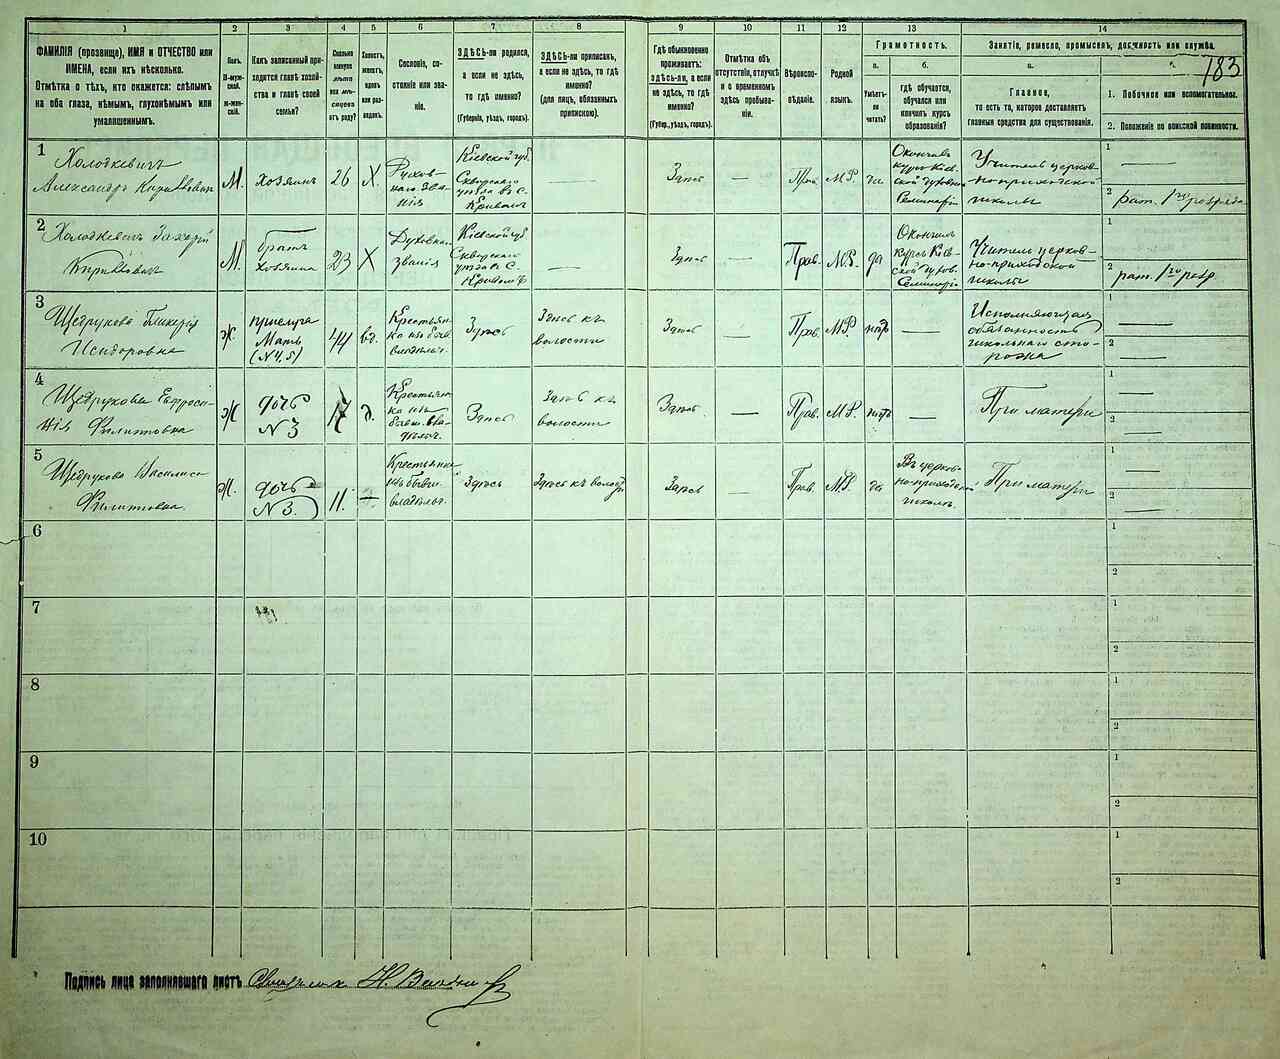 1
2
3
4
5
6
7
8
9
10
11
12
13
14
ФАМИЛІЯ (прозвище), ИМЯ и ОТЧЕСТВО или
ИМЕНА, если ихъ нѣсколько.
Отмѣтка о тѣхъ, кто окажется: слѣпымъ
на оба глаза, нѣмымъ, глухонѣмымъ или
умалишеннымъ.
Полъ.
М-муж-
ской.
Ж-жен-
скій.
Какъ записанный при-
ходится главѣ хозяй-
ства и главѣ своей
семьи?
Сколько
минуло
лѣтъ
или мѣ-
сяцевъ
отъ роду?
Холостъ,
женатъ,
вдовъ
или раз-
веденъ.
Сословіе, со-
стояніе или зва-
ніе.
ЗДѢСЬ-ли родился,
а если не здѣсь,
то гдѣ именно?
(Губернія, уѣздъ, городъ).
ЗДѢСЬ-ли приписанъ,
а если не здѣсь, то гдѣ
именно?
(для лицъ, обязанныхъ
припискою).
Гдѣ обыкновенно
проживаетъ:
ЗДѢСЬ-ли, а если
не здѣсь, то гдѣ
именно?
(Губер., уѣздъ, городъ).
Отмѣтка объ
отсутствіи, отлучкѣ
и о временномъ
здѣсь пребыва-
ніи.
Вѣроиспо-
вѣданіе.
Родной
языкъ.
Грамотность.
а.
Умѣетъ-
ли
читать?
б.
Гдѣ обучается,
обучался или
кончилъ курсъ
образованія?
Занятіе, ремесло, промыселъ, должность или служба.
183
а.
Главное,
то есть то, которое доставляетъ
главныя средства для существованія.
1. Побочное или вспомогательное.
2. Положеніе по воинской повинности.
1
Холодкевичъ
Александръ Кириллович
М.
хозяинъ
26
Х.
Духов-
наго зва-
нія
Кіевской губ.
Сквирского
уѣзда въ с.
Кривомъ
Здѣсь
Прав.
М.Р.
да
Окончилъ
курсъ Кіев-
ской духовн.
Семинаріи
Учитель церков-
но-приходской
школы
1
2
рат. 1го разряда
2
Холодкевичъ Захарій
Кирилловичъ
М.
братъ
хозяина
23
Х
Духовнаго
званія
Кіевской губ.
Сквирского
уѣзда въ с.
Кривомъ
Здѣсь
Прав.
М.Р.
да
Окончилъ
курсъ Кіев-
ской духов.
Семинаріи
Учитель церков-
но-приходской
школы
2
рат. 1го разр.
3
Щедрукова Гликерія
Исидоровна
Ж.
прислуга
Мать
(N 4, 5)
44
вд.
Крестьян-
ка изъ бывш.
владѣльч.
Здѣсь
Здѣсь къ
волости
Здѣсь
Прав.
М.Р.
нѣтъ
Исполняющая
обязанность
школьнаго сто-
рожа
1
2
4
Щедрукова Евфроси-
нія Филипповна
Ж
дочь
N 3
17
д.
Крестьян-
ка изъ
бывш. вла-
дѣльч.
Здѣсь
Здѣсь къ
волости
Здѣсь
Прав.
М.Р.
нѣтъ
При матери
1
2
5
Щедрукова Василиса
Филипповна.
Ж.
дочь
N 3.
11.
Крестьянка
изъ бывш.
владѣльч.
Здѣсь
Здѣсь къ волости
Здѣсь
Прав.
М.Р.
да
Въ церков-
но-приходской
школѣ.
При матери
1
2
6
1
2
7
1
2
8
1
2
9
1
2
10
1
2
Подпись лица заполнявшаго листъ